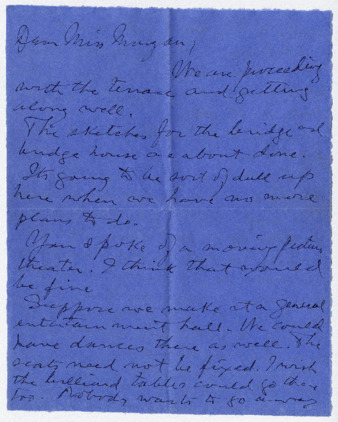 Dear Miss Morgan,
We are proceeding
with the terrace and getting
along well.
The sketches for the bridge and
bridge house are about done.
Its going to be sort of dull up
here when we have no more
plans to do.
You spoke of a moving picture
theater. I think that would
be fine
Suppose we make it a general
entertainment hall. We could
have dances there as well. The
seats need not be fixed. I wish
the billiard tables could go there
too. Nobody wants to go away